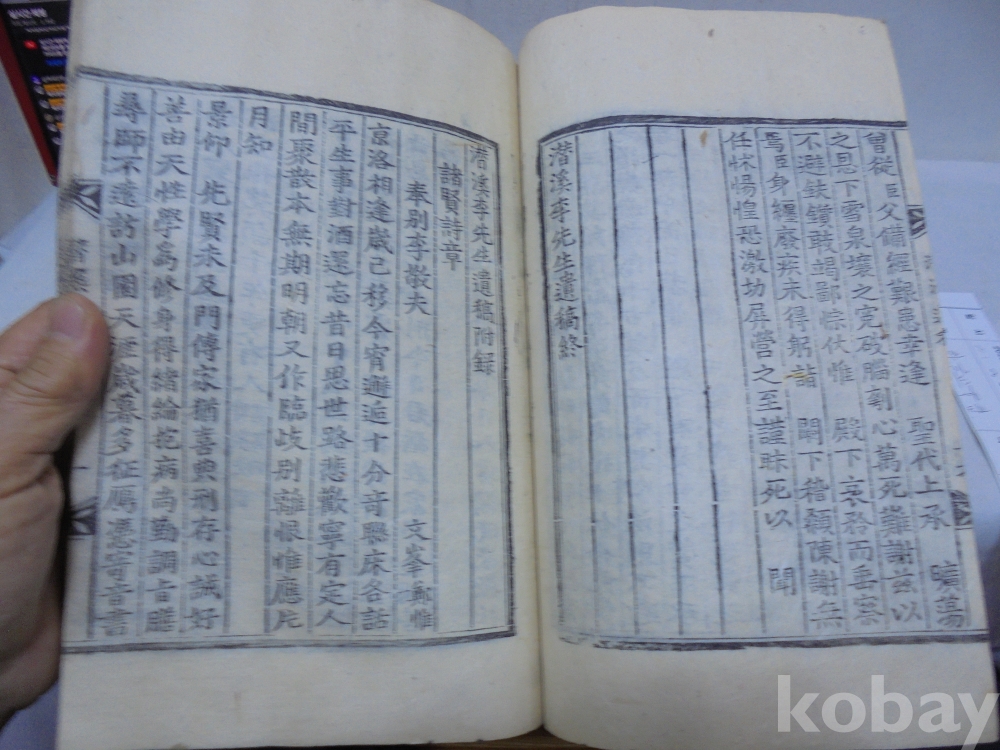 曾從 臣父備經艱患幸逢 聖代上承 曠蕩
之恩下雪泉壤之寃破腦刳心萬死難謝玆以
不避鈇鑕敢竭鄙悰伏惟 殿下哀矜而垂察
焉臣身纏癈疾未得躬詣 闕下稽顙陳謝無
任怵惕惶恐激切屏營之至謹昧死以 聞
潛溪李先生遺稿終
潛溪李先生遺稿附録
諸賢詩章
奉別李敬夫 文峯鄭惟
京洛相逢歲已移今宵邂逅十分奇聯床各話
平生事對酒還忘昔日思世路悲歡寧有定人
間聚散本無期明朝又作臨歧別離恨惟應片
月知
景仰 先賢未及門傳家猶喜典刑存心誠好
善由天性學爲修身得緖綸抱病尙勤調旨膳
尋師不遠訪山園天涯歲暮多征鴈憑寄音書
kobay